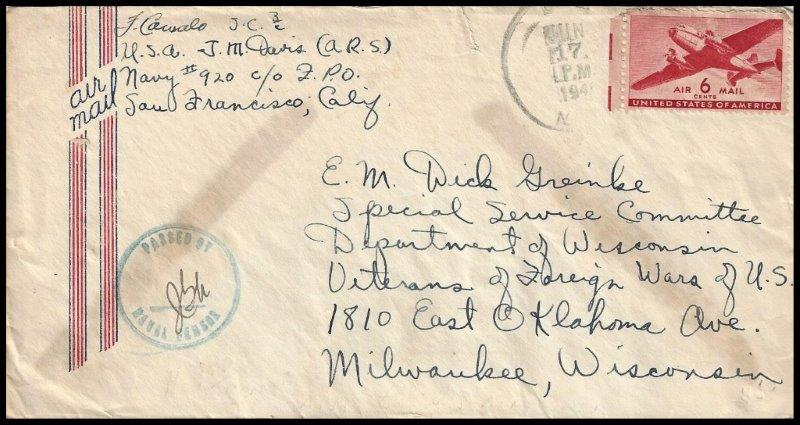 J. C. 3/c
U.S.A. J. M. Davis (A.R.S)
Navy #920 c/o F.P.O.
San Francisco, Calif.
air
mail
17
PM
194
AIR 6 MAIL
CENTS
UNITED STATES OF AMERICA
E. M. Dick Greinke
Special Service Committee
Department of Wisconsin
Veterans of Foreign Wars of U.S.
1810 East Oklahoma Ave.
Milwaukee, Wisconsin
PASSED BY
NAVAL CENSOR